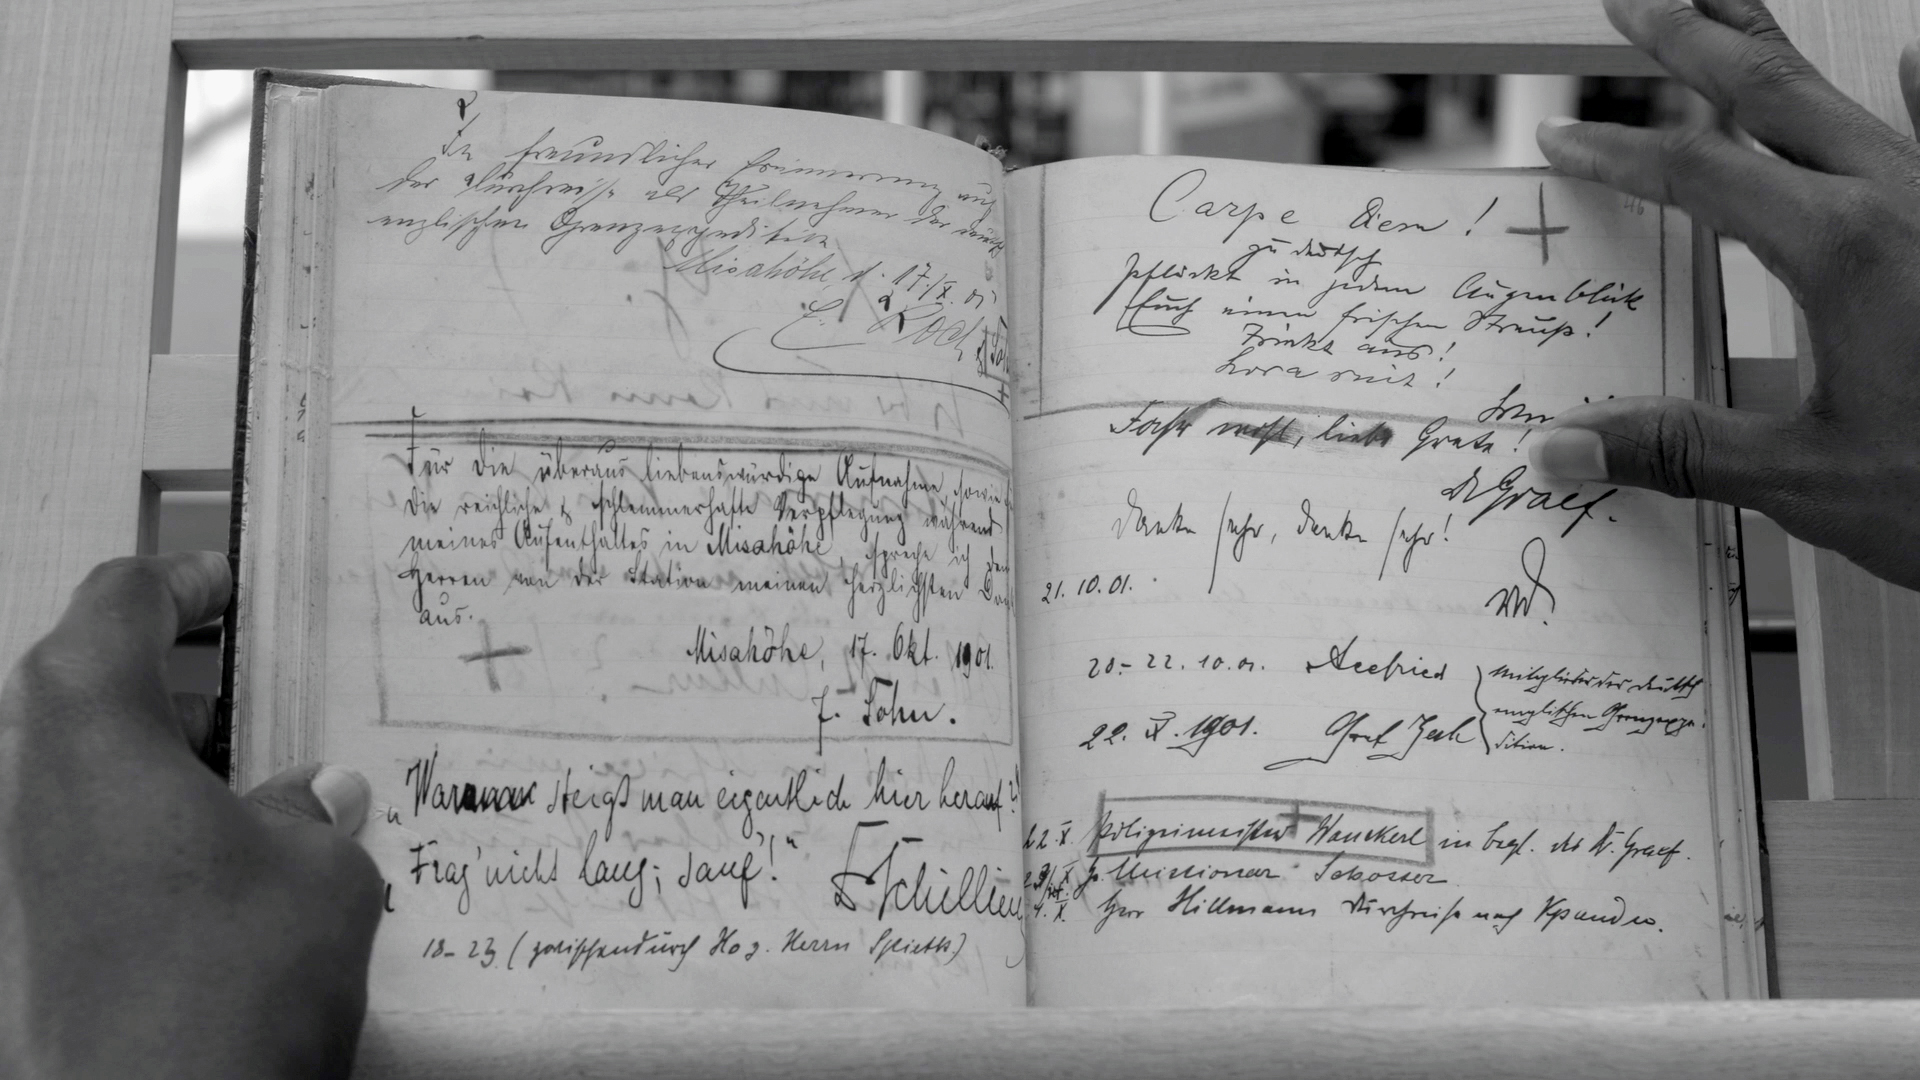 In freundlicher Erinnerung auf
der Durchreise als Theilnehmer der deutsch
englischen Grenzexpedition
Misahöhe, d. 17/X. 01
E. Koch
Für die überaus liebenswürdige Aufnahme, sowie
die reichliche & schlemmerhafte Verpflegung während
meines Aufenthaltes in Misahöhe, spreche ich den
Herren von der Station meinen herzlichsten
aus.
Misahöhe, 17. Okt. 1901.
J. Sohn.
„Warum steigt man eigentlich hier herauf?
„Frag' nicht lang; sauf'!"
Schilling
18–23 (zwischendurch Ho z. Herrn Spieth)
46
Carpe diem!
zu deutsch
Pflückt in jedem Augenblick
Euch einen frischen Strauß!
Trinkt aus!
Lora mit!
Fahr wohl, liebe Grete!
Dr Graef.
Danke sehr, danke sehr!
21. 10. 01.
20–22. 10. 01. Seefried
Mitglieder der deutsch
englischen Grenzexpe-
dition.
22. X. 1901. Graf Zech
22. X. Polizeimeister Wanckerl in Begl. des Dr. Graef.
Missionar Schosser
Herr Hillmann Durchreise nach Kpandu.